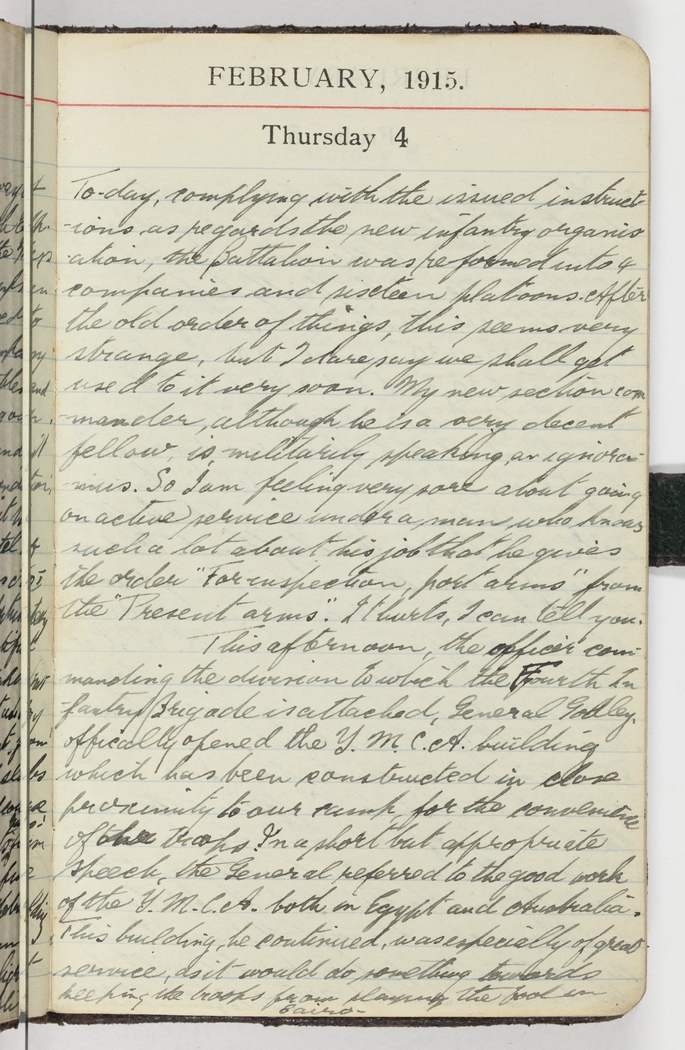 FEBRUARY, 1915.
Thursday 4
To-day, complying with the issued instruct-
-ions as regards the new infantry organis
-ation, the Battalion was reformed into 4
companies and sixteen platoons. After
the old order of things, this seems very
strange, but I dare say we shall get
used to it very soon. My new section com
-mander, although he is a very decent
fellow, is, militarily speaking, an ignora-
-mus. So I am feeling very sore about going
on active service under a man who knows
such a lot about his job that he gives
the order "For inspection, port arms" from
the "Present arms". It hurts, I can tell you.
This afternoon, the officer com-
manding the division to which the Fourth In
-fantry Brigade is attached, General Godley,
offically opened the Y. M. C. A. building
which has been constructed in close
proximity to our camp, for the convenience
of the troops. In a short but appropriate
speech, the General referred to the good work
of the Y. M. C. A. both in Egypt and Australia.
This building, he continued, was especially of great
service, as it would do something towards
keeping the troops from playing the fool in
Cairo.